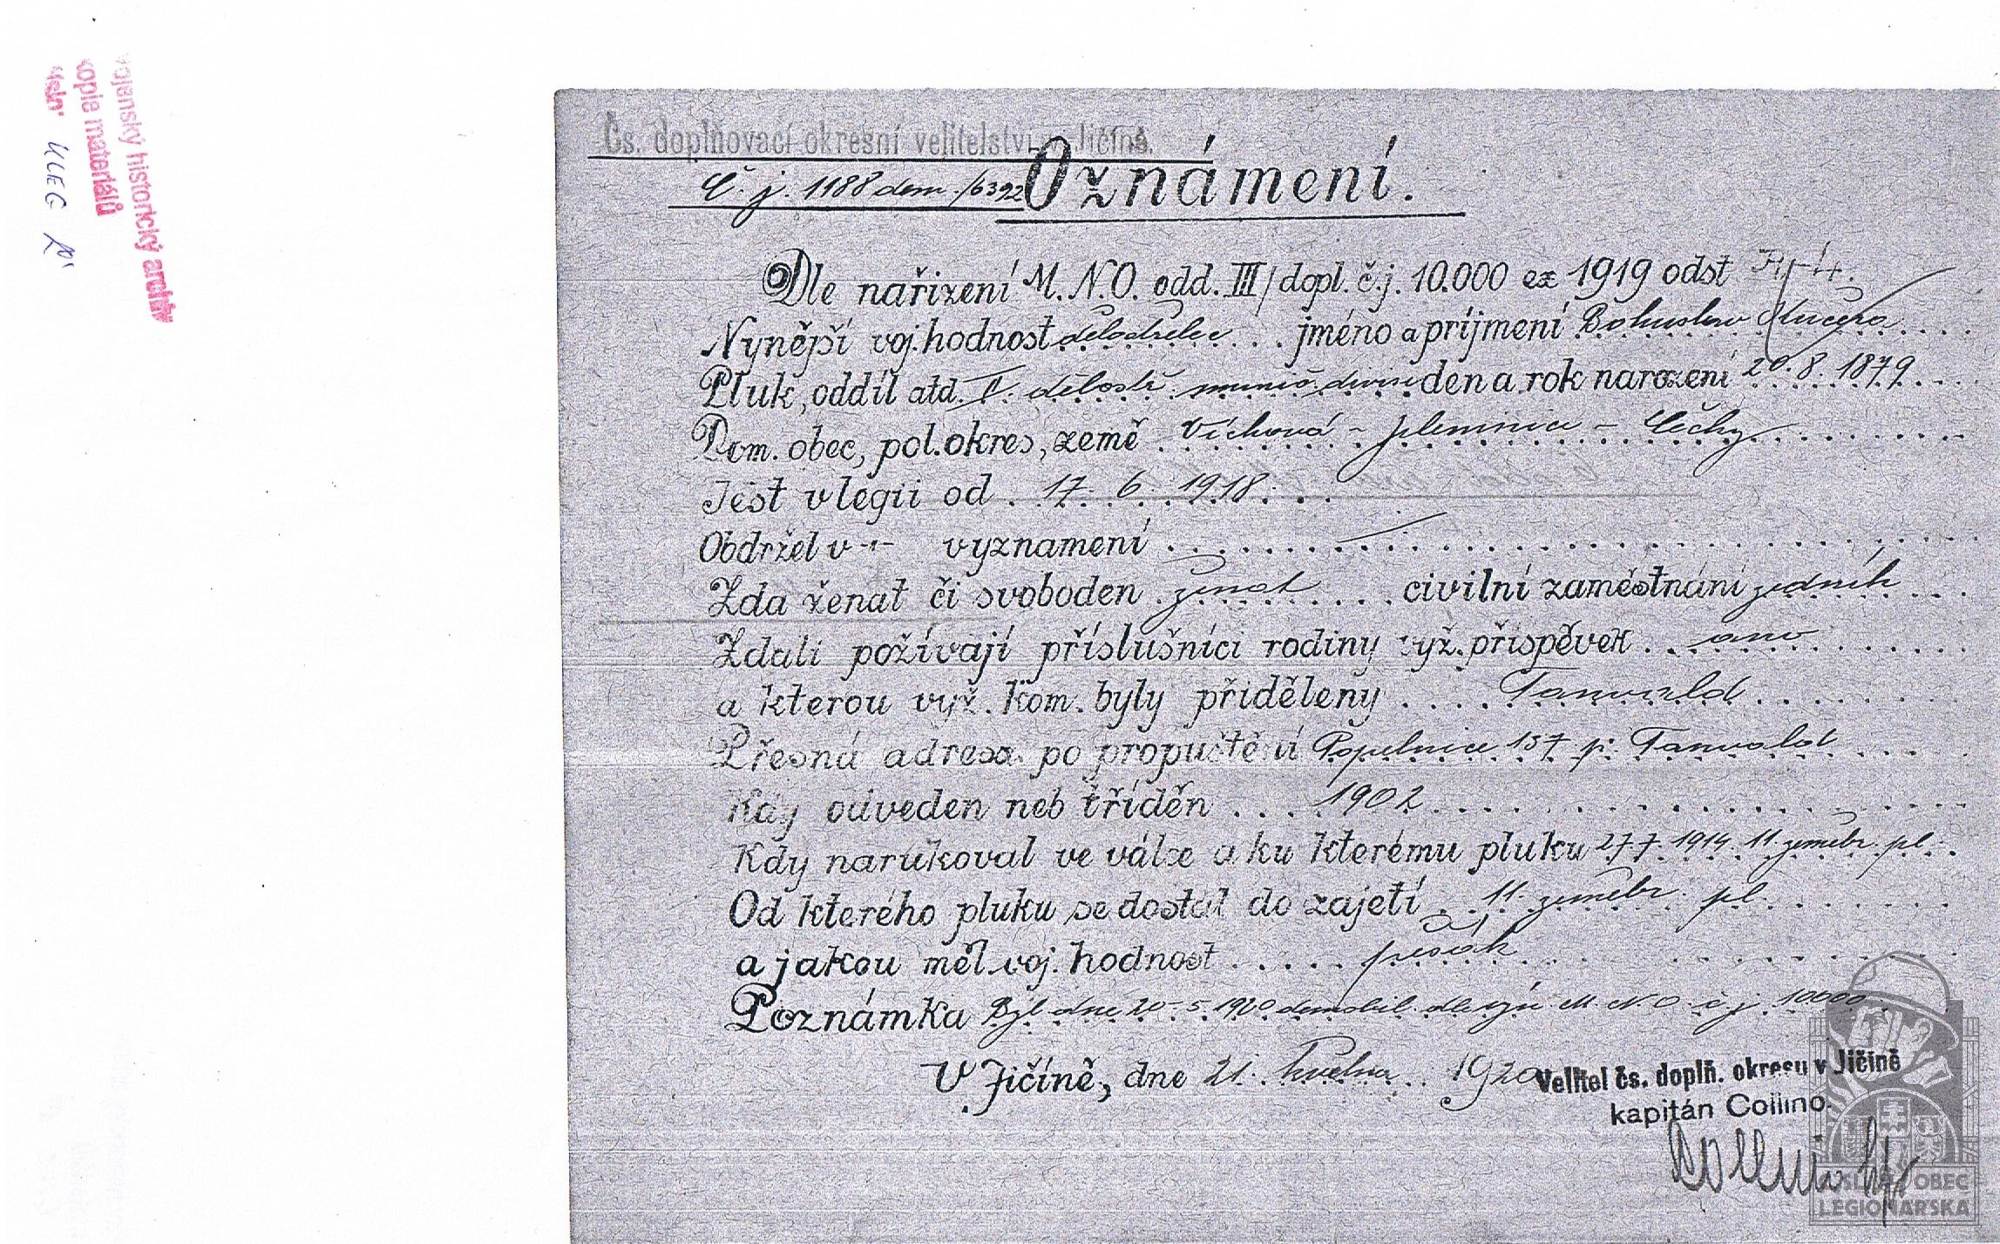 Vojenský historický archiv
kopie materiálů
Čs. doplňovací okresní velitelství v Jičíně.
Č. j. 1188 dem./6392
Oznámení.
Dle nařízení M.N.O. odd. III/dopl. č.j. 10.000 ex 1919 odst
Nynější voj. hodnost dělostřelec jméno a príjmení Bohuslav Kučera
Pluk, oddíl atd. II. dělostř. munič. divise den a rok narození 20.8.1879
Dom. obec, pol. okres, země Víchová - Jilemnice - Čechy
Jest v legii od 17. 6. 1918.
Obdržel v-- vyznamení
Zda ženat či svoboden ženat civilní zaměstnání zedník
Zdali požívají příslušníci rodiny vyž. příspěvek ano
a kterou vyž. kom. byly přiděleny Tanvald
Přesná adresa po propuštění Popelnice 157 p. Tanvald
Kdy odveden neb tříděn 1902
Kdy narukoval ve válce a ku kterému pluku 27.7.1914 11. zeměbr. pl.
Od kterého pluku se dostal do zajetí 11. zeměbr. pl.
a jakou měl voj. hodnost pěšák
Poznámka Byl dne 20.5.1920 demobil. dle výn. M.N.O. č.j. 10000
V Jičíně, dne 21. května 1920
Velitel čs. doplň. okresu v Jičíně
kapitán Collino.
Collino
ČSL. OBEC
LEGIONÁŘSKÁ